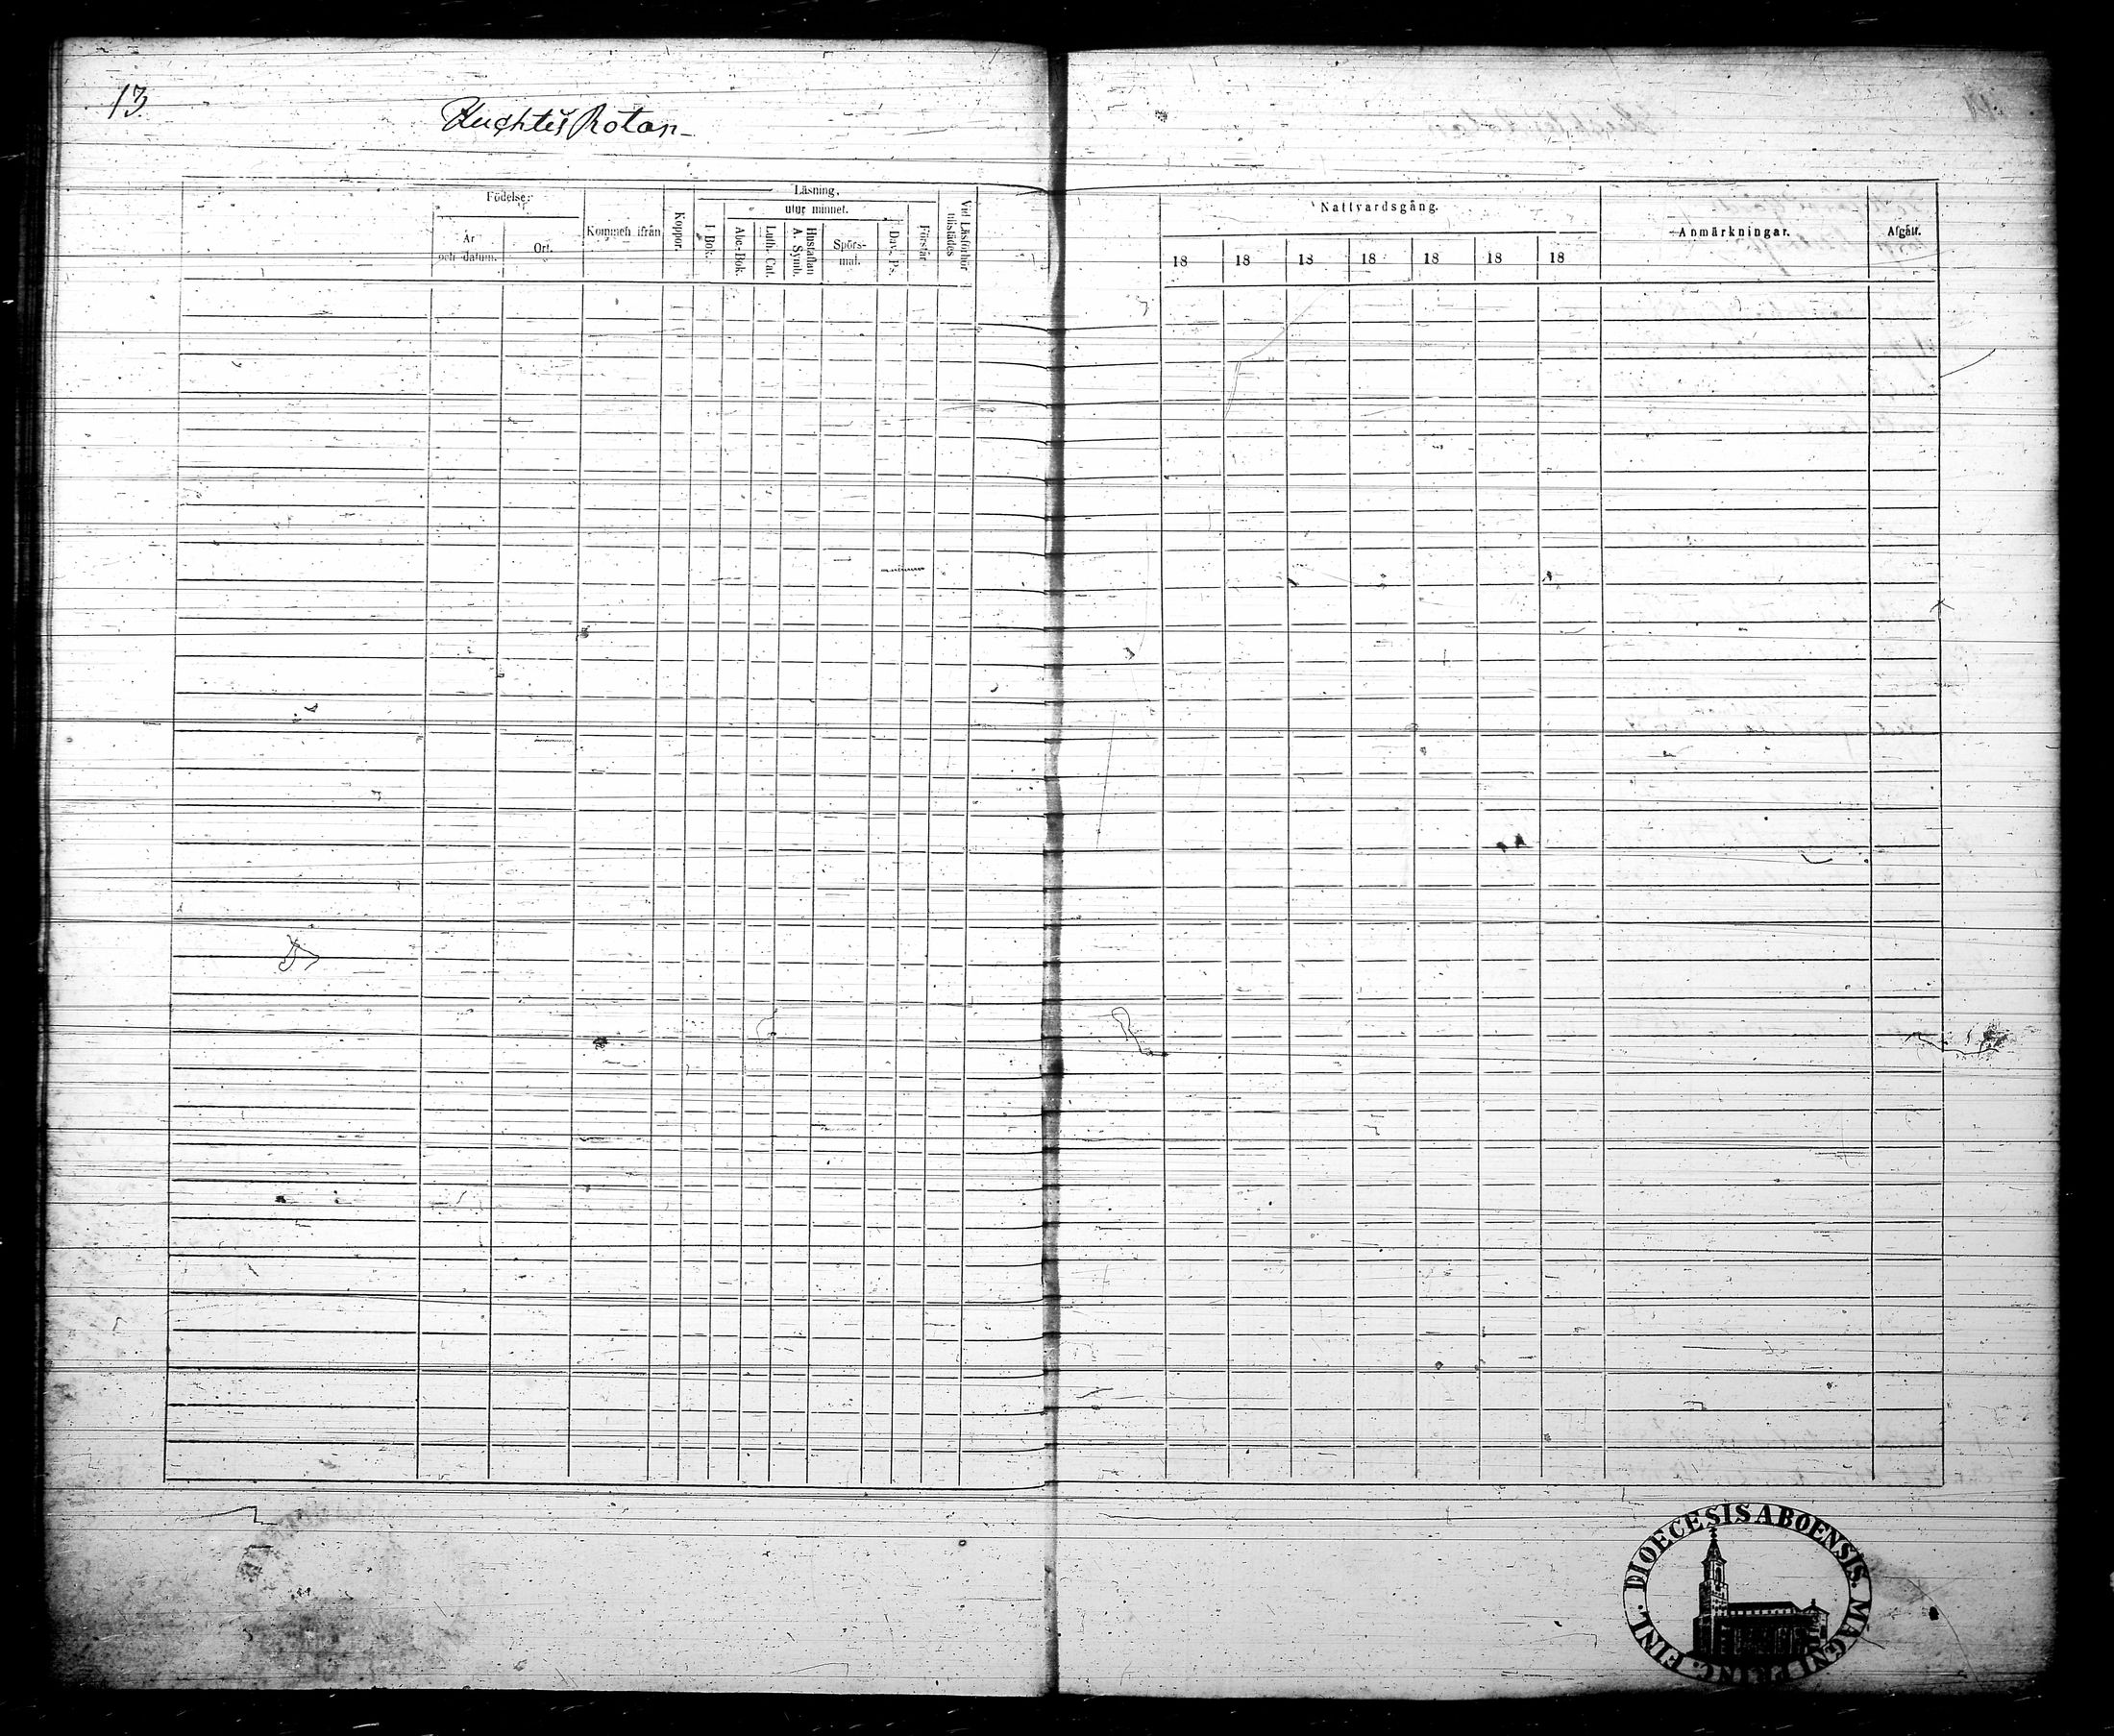 13.
Rotan
Födelse:
Läsning,
utur minnet.
År
och datum.
Ort.
Kommen ifrån
Koppor.
I Bok.
Abc-Bok.
Luth. Cat.
Hustaflan
A. Symb.
Spörs-
mål.
Dav. Ps.
Förstår
Vid Läsförhör
tillstädes
Nattvardsgång.
18 18 18 18 18 18 18
Anmärkningar.
Afgått.
DIOECESIS ABOENSIS. MAGNI PRINC. FINL.